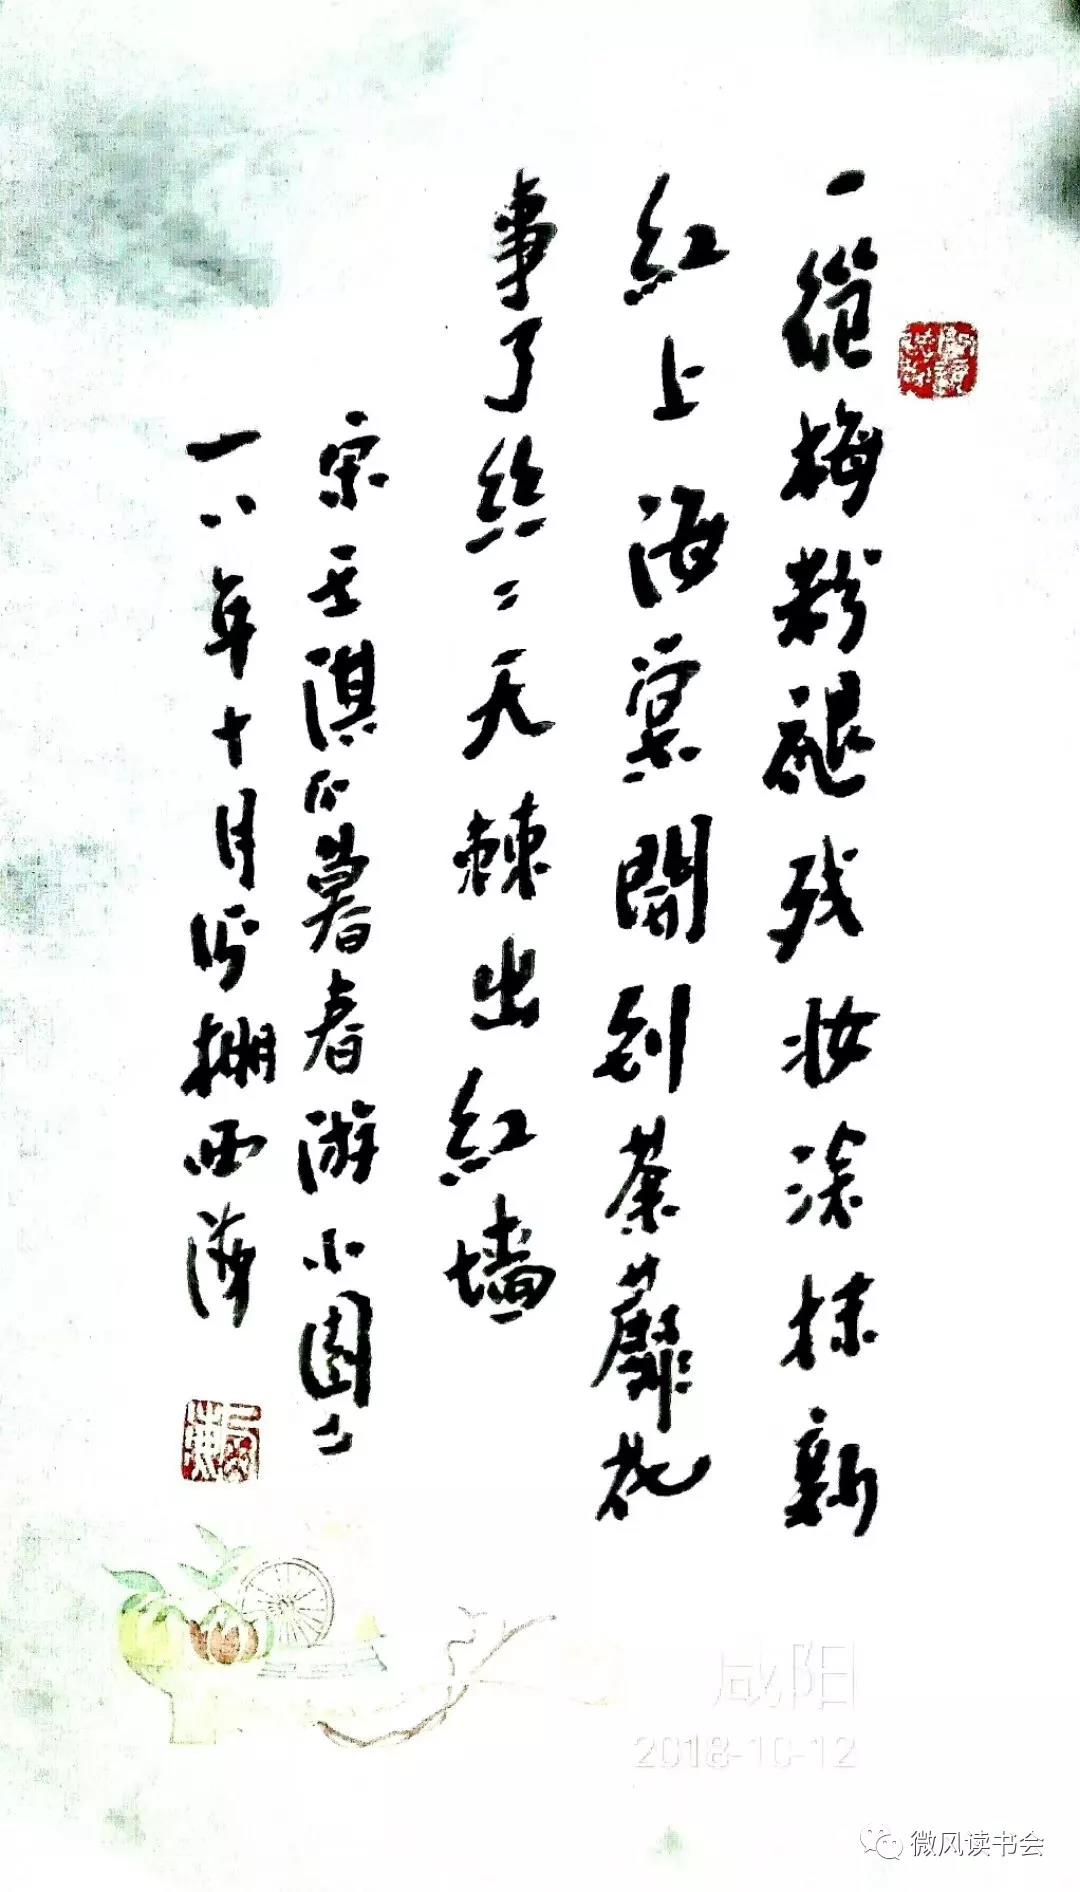 一從梅粉褪残妆涂抹新
紅上海棠開到荼蘼花
事了丝〻天棘出紅墙
宋王淇暮春游小園
一八年十月棚西
咸阳
2018-10-12
微风读书会